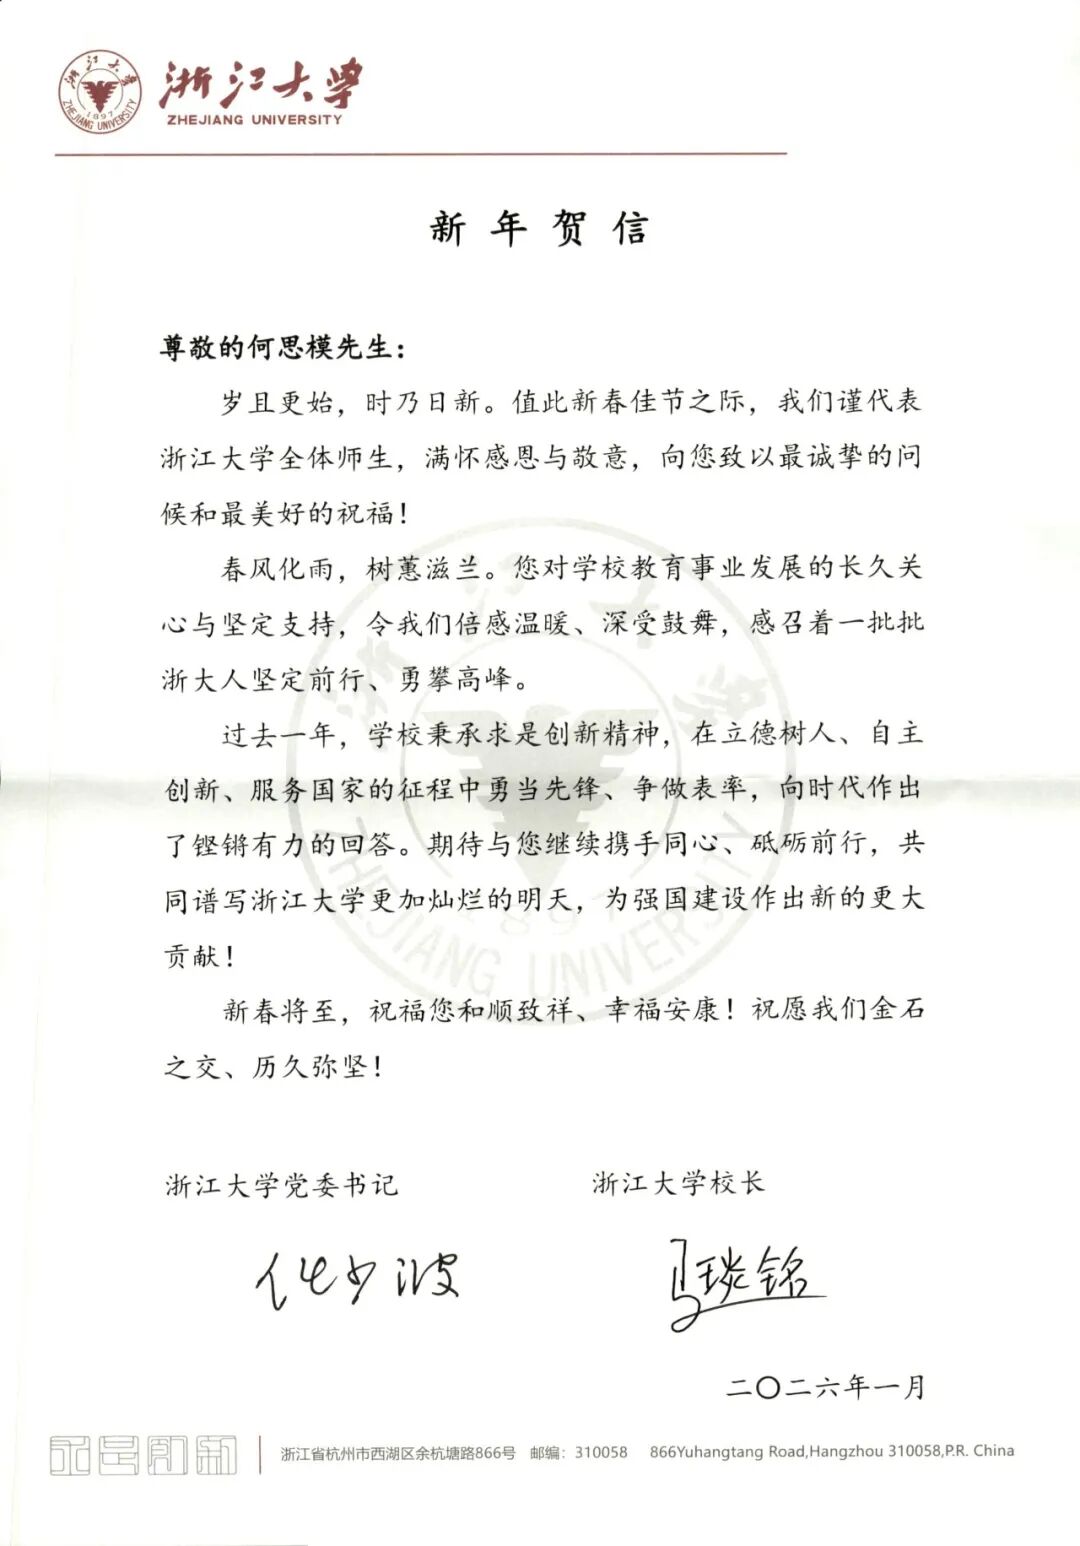 浙江大学
ZHEJIANG UNIVERSITY
浙江大学
1897
ZHEJIANG UNIVERSITY
新年贺信
尊敬的何思模先生：
岁且更始，时乃日新。值此新春佳节之际，我们谨代表
浙江大学全体师生，满怀感恩与敬意，向您致以最诚挚的问
候和最美好的祝福！
春风化雨，树蕙滋兰。您对学校教育事业发展的长久关
心与坚定支持，令我们倍感温暖、深受鼓舞，感召着一批批
浙大人坚定前行、勇攀高峰。
过去一年，学校秉承求是创新精神，在立德树人、自主
创新、服务国家的征程中勇当先锋、争做表率，向时代作出
了铿锵有力的回答。期待与您继续携手同心、砥砺前行，共
同谱写浙江大学更加灿烂的明天，为强国建设作出新的更大
贡献！
新春将至，祝福您和顺致祥、幸福安康！祝愿我们金石
之交、历久弥坚！
浙江大学
1897
ZHEJIANG UNIVERSITY
浙江大学党委书记 浙江大学校长
任少波 马琰铭
二〇二六年一月
求是创新
浙江省杭州市西湖区余杭塘路866号 邮编：310058 866Yuhangtang Road,Hangzhou 310058,P.R. China